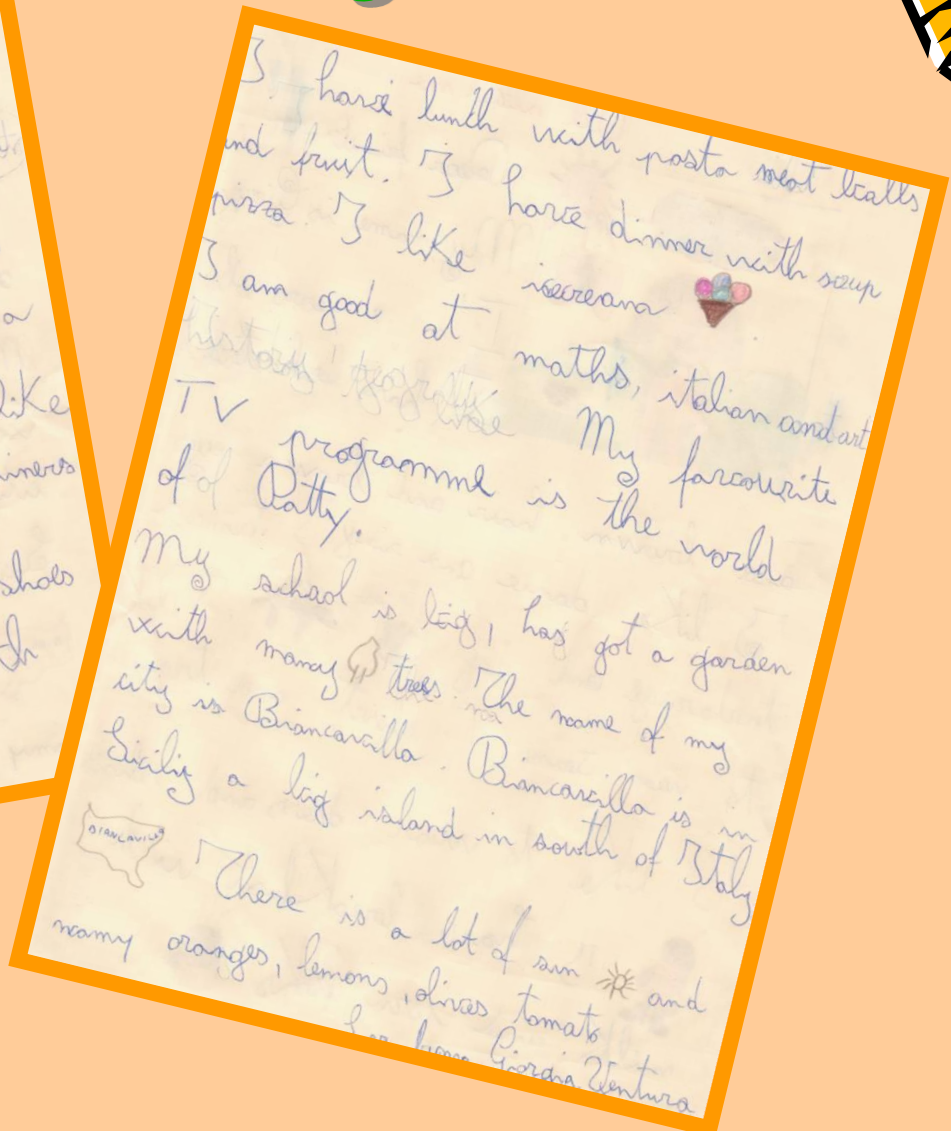 a
like
shoes
I have lunch with pasta meat balls
and fruit. I have dinner with soup
pizza. I like icecream
I am good at maths, italian and art
history
TV My favourite
programme is the world
of of Patty.
My school is big, has got a garden
with many trees. The name of my
city is Biancavilla. Biancavilla is in
Sicily a big island in south of Italy
BIANCAVILLA
There is a lot of sun and
many oranges, lemons, olives tomato
Giorgia Ventura